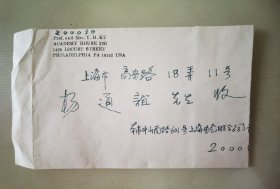 200030
Prof. and Mrs. Y. H. KU
ACADEMY HOUSE 22B
1420 LOCUST STREET
PHILADELPHIA PA 19102 USA
上海市 高安路 18弄 11号
杨通谊 先生 收
2000